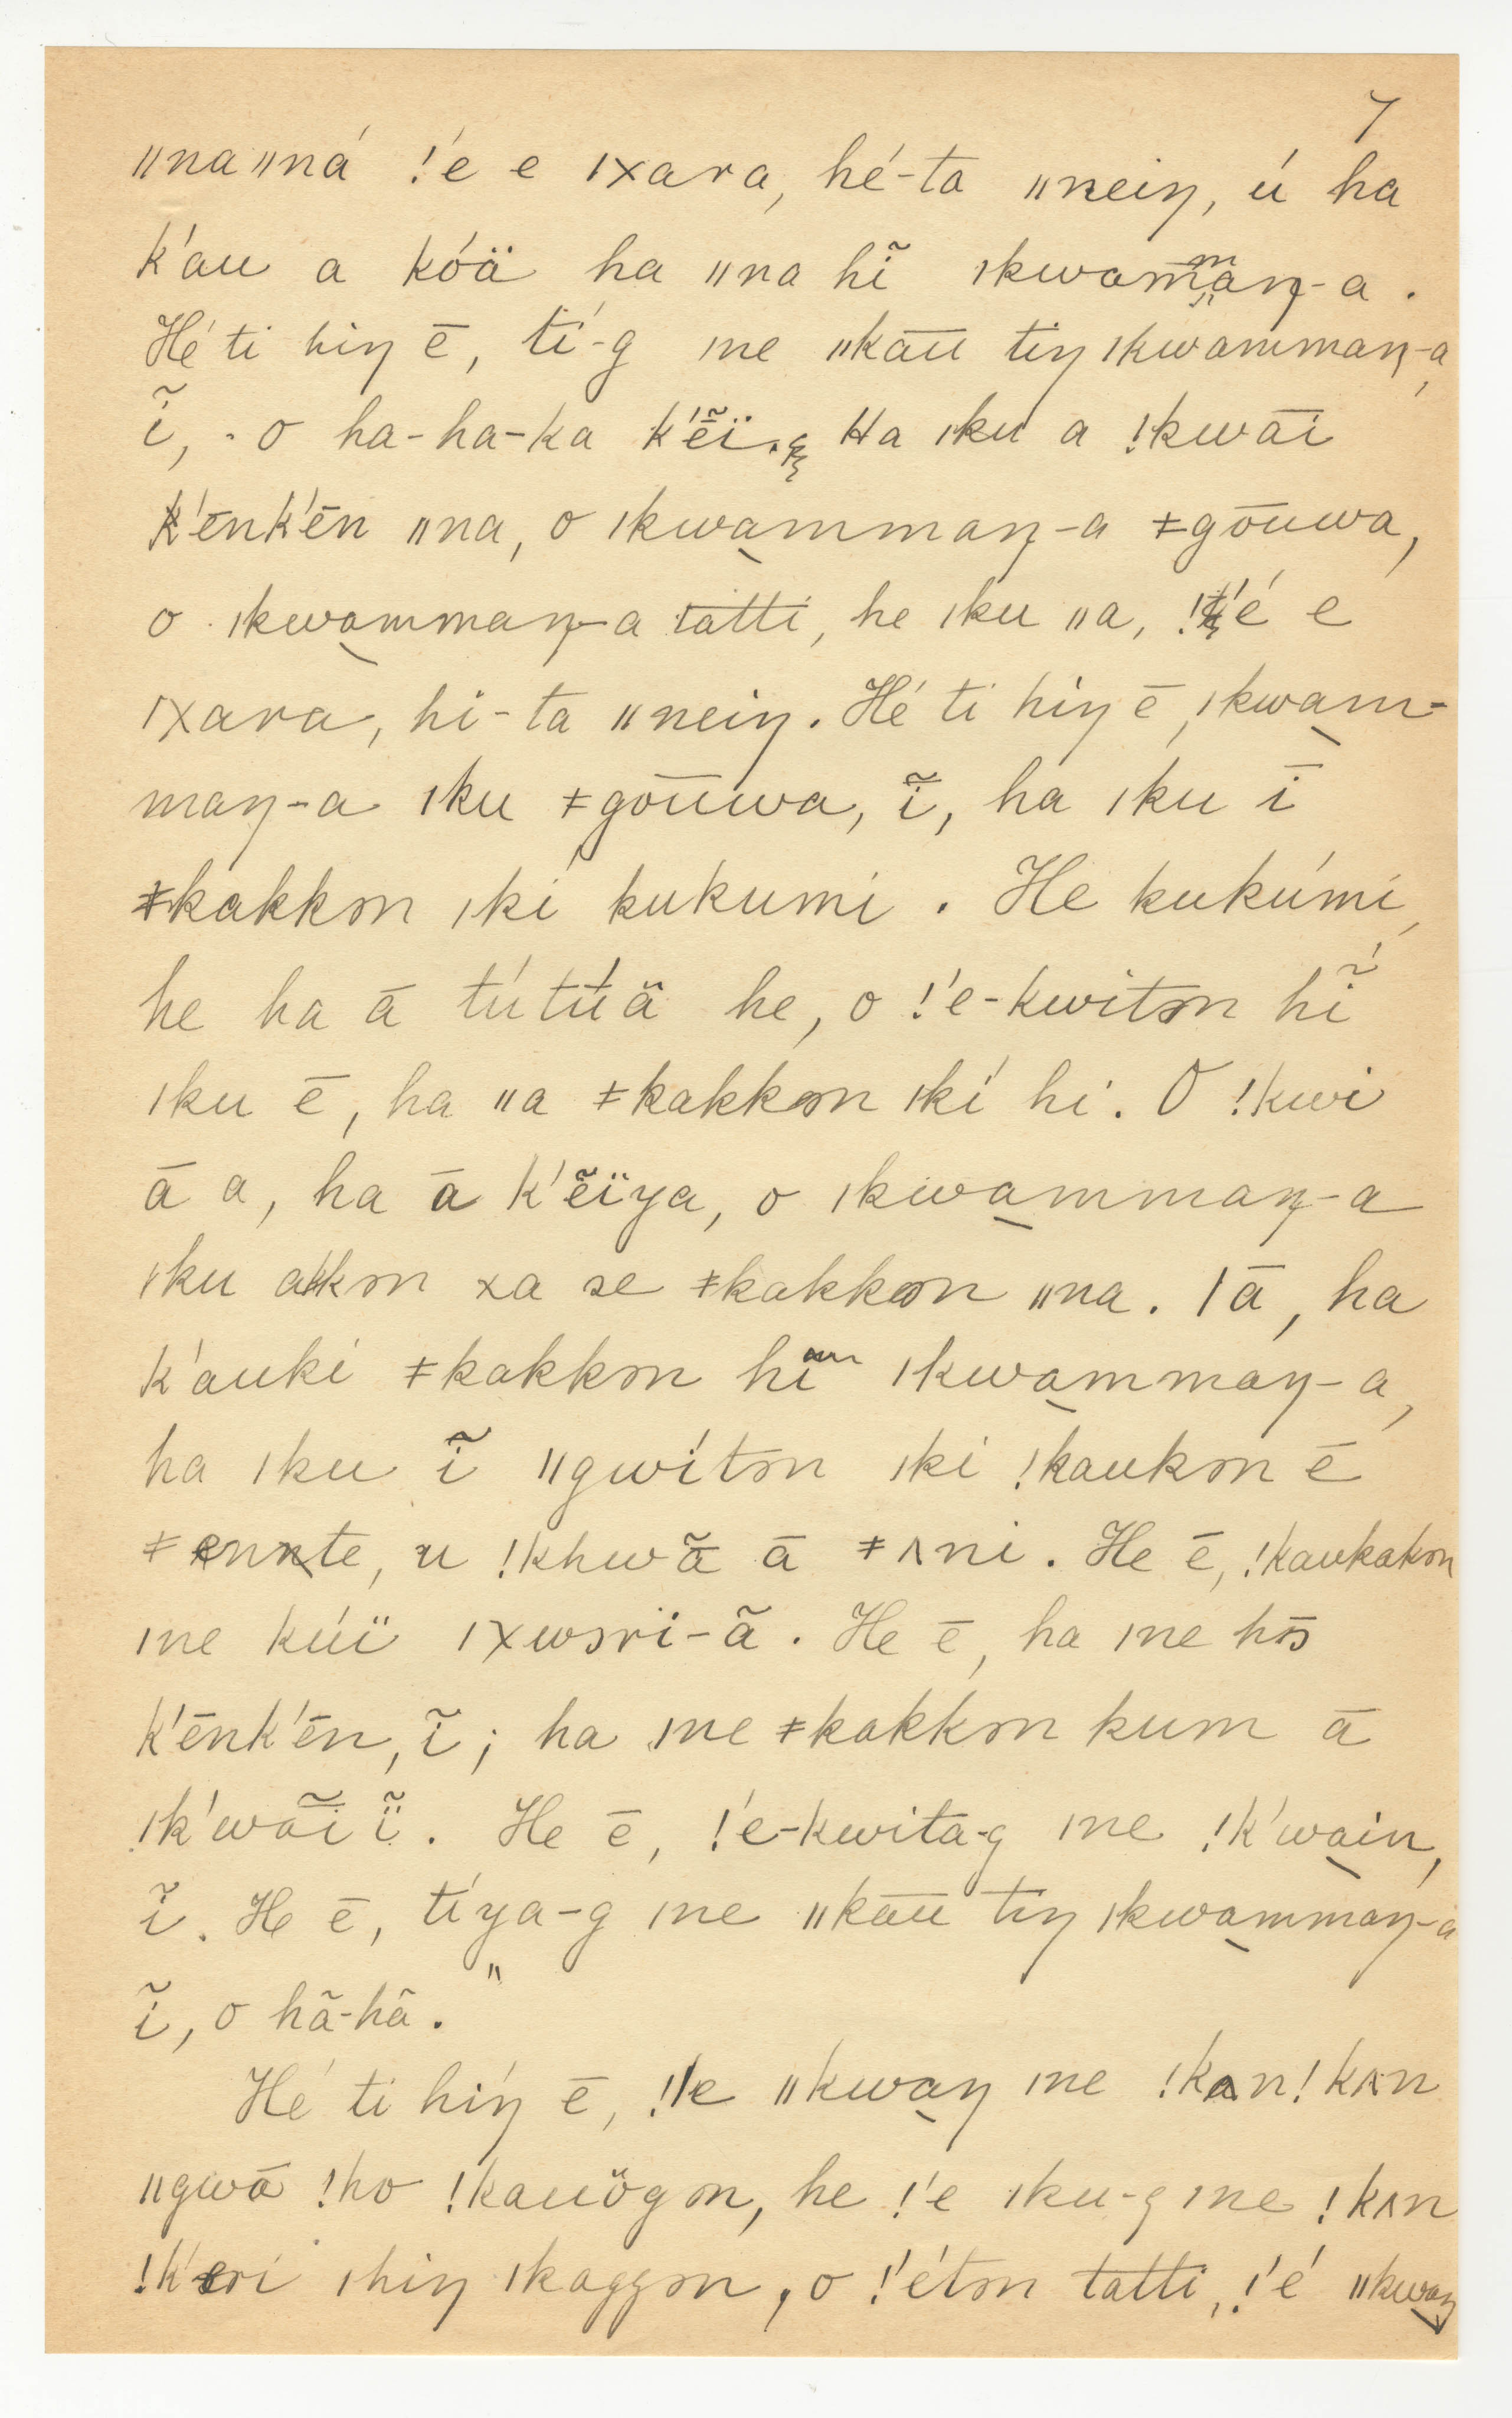 7
ǁnaǁná !é e ǀxara, hé-ta ǁneiŋ, ú ha
k'au a kóä ha ǁna hĩ ǀkwammaŋ-a.
Hé ti hiŋ ē, tí-g ǀne ǁkāū tiŋ ǀkwammaŋ-a,
ĩ, o ha-ha-ka k'ẽï. Ha ǀku a !kwāī
k'ēnk'ēn ǁna, o ǀkwa̠mmaŋ-a ǂgōuwa,
o ǀkwa̠mmaŋ-a tātti, he ǀku ǁa, !é e
ǀxara, hi-ta ǁneiŋ. Hé ti hiŋ ē, ǀkwa̠m-
maŋ-a ǀku ǂgōūwa, ĩ, ha ǀku ī
ǂkakkɔn ǀki kukumi. He kukúmi,
he ha ā tútúä he, o !'e-kwitɔn hĩ
ǀku ē, ha ǁa ǂkakkɔn ǀkí hi. O !kwi
ā a, ha ā k'ẽïya, o ǀkwa̠mmaŋ-a
ǀku akkɔn xa se ǂkakkɔn ǁna. ǀā, ha
k'auki ǂkakkɔn hĩ ǀkwa̠mmaŋ-a,
ha ǀku ĩ ǁgwítɔn ǀki !kaukɔn ē
ǂennte, u !khwã ā ǂʌni. He ē, !kaukakɔn
ǀne kúï ǀxwɔrï-ã. He ē, ha ǀne hɔ̄
k'ēnk'ēn, ĩ; ha ǀne ǂkakkɔn kum ā
!k'wãĩ ĩ. He ē, !'e-kwita-g ǀne !k'wa̠in,
ĩ. He ē, tíya-g ǀne ǁkāū tīŋ ǀkwa̠mmaŋ-a
ĩ, o hã-hã."
Hé ti híŋ ē, !k'e ǁkwa̠ŋ ǀne !kʌn!kʌn
ǁgwā !ho !kauögɔn, he !'e ǀku-g ǀne !kʌn
!k'eri ǀhiŋ ǀkaggɔn, o !'étɔn tātti, !'é ǁkwa̠ŋ